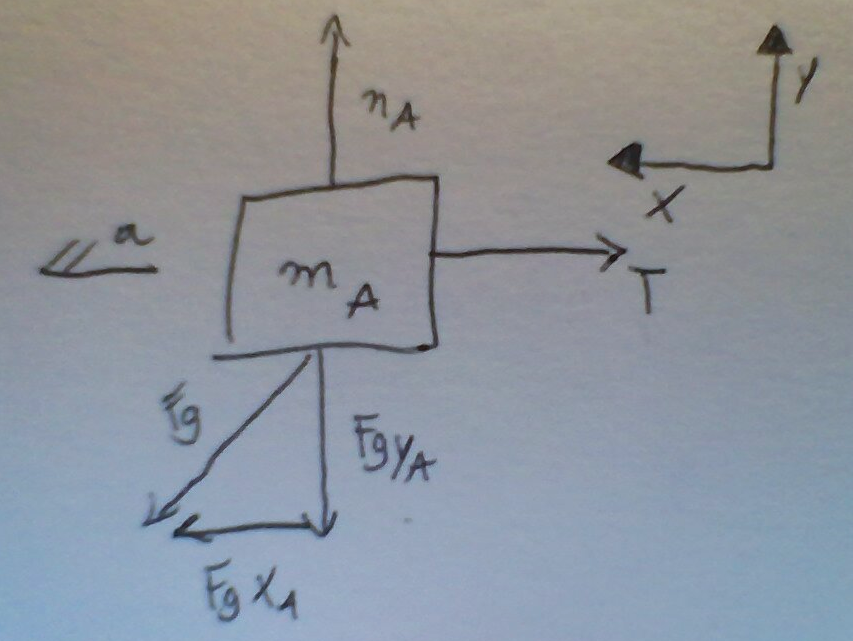 n_A
y
x
a
m_A
T
Fg
Fgy_A
Fgx_A